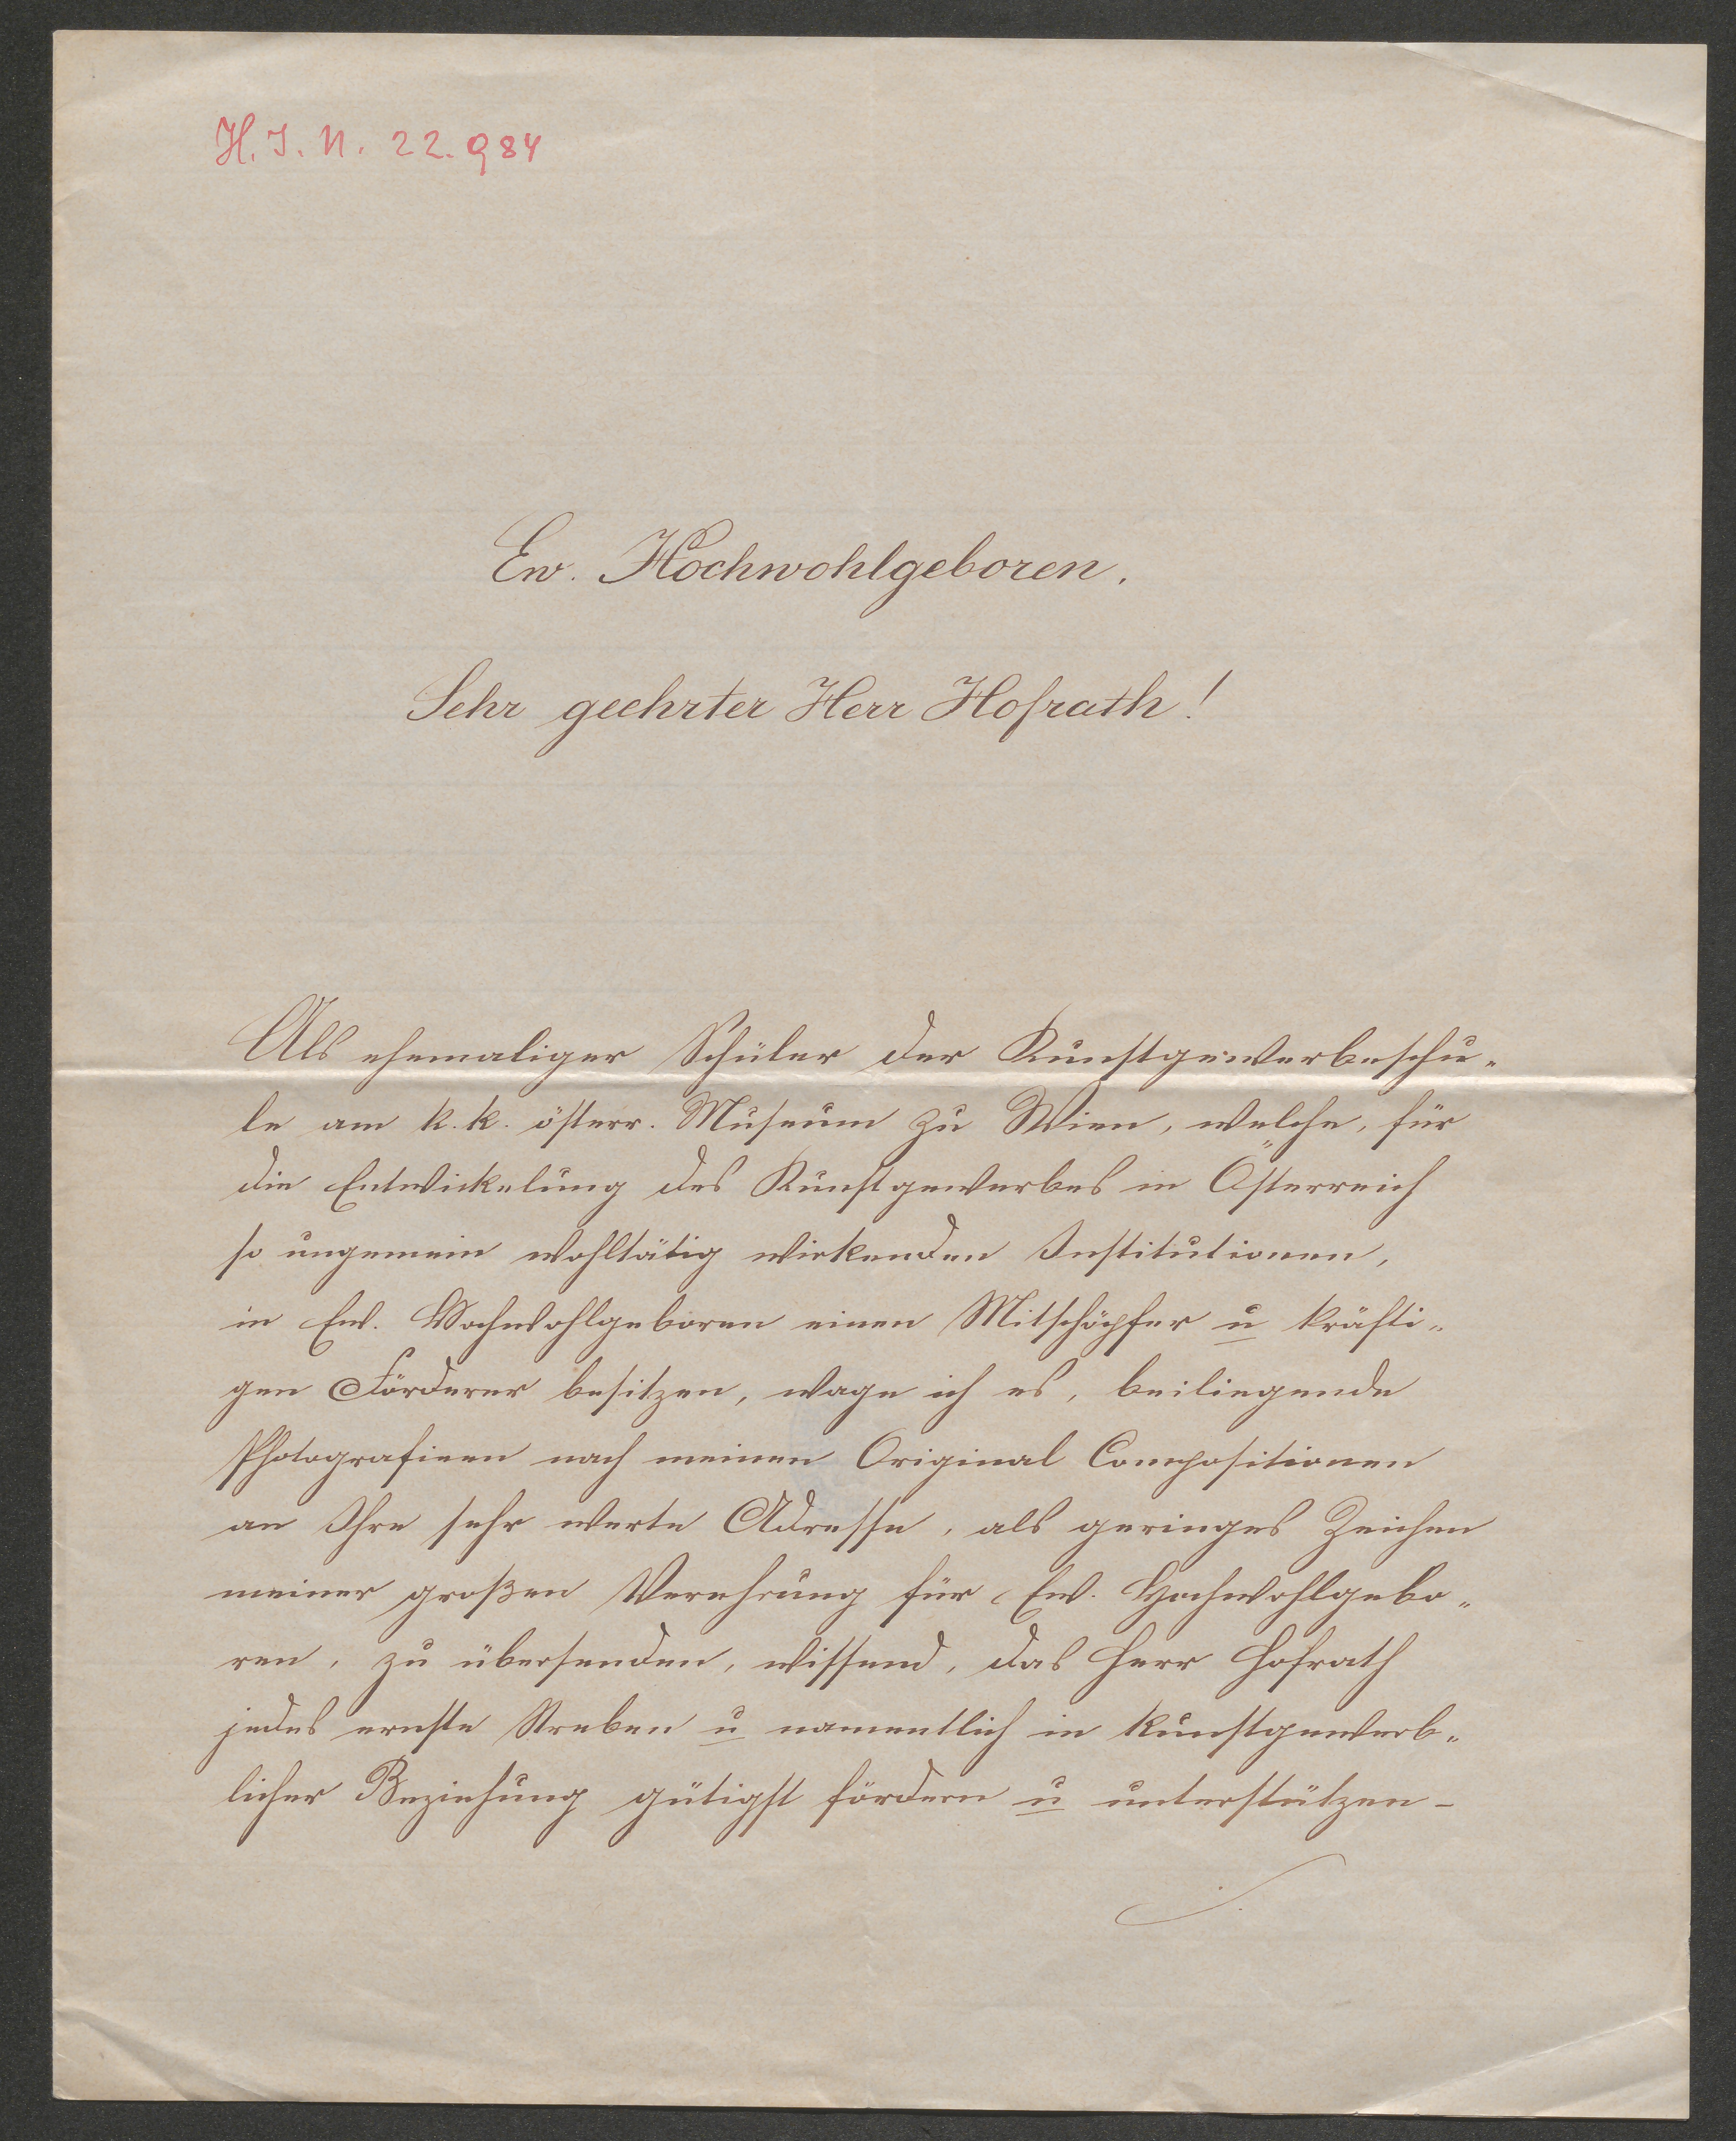 H. I. N. 22.984
Ew. Hochwohlgeboren.
Sehr geehrter Herr Hofrath!
Als ehemaliger Schüler der Kunstgewerbeschu„
le am k. k. österr. Museum zu Wien, welche, für
die Entwickelung des Kunstgewerbes in Österreich
so ungemein wohltätig wirkenden Institutionen,
in Ew. Hochwohlgeboren einen Mitschöpfer u kräfti„
gen Förderer besitzen, wage ich es, beiliegende
Photografieen nach meinen Original Compositionen
an Ihre sehr werte Adresse, als geringes Zeichen
meiner großen Verehrung für Ew. Hochwohlgebo„
ren, zu übersenden, wissend, das Herr Hofrath
jedes ernste Streben u namentlich in kunstgewerb„
licher Beziehung gütigst fördern u unterstützen –